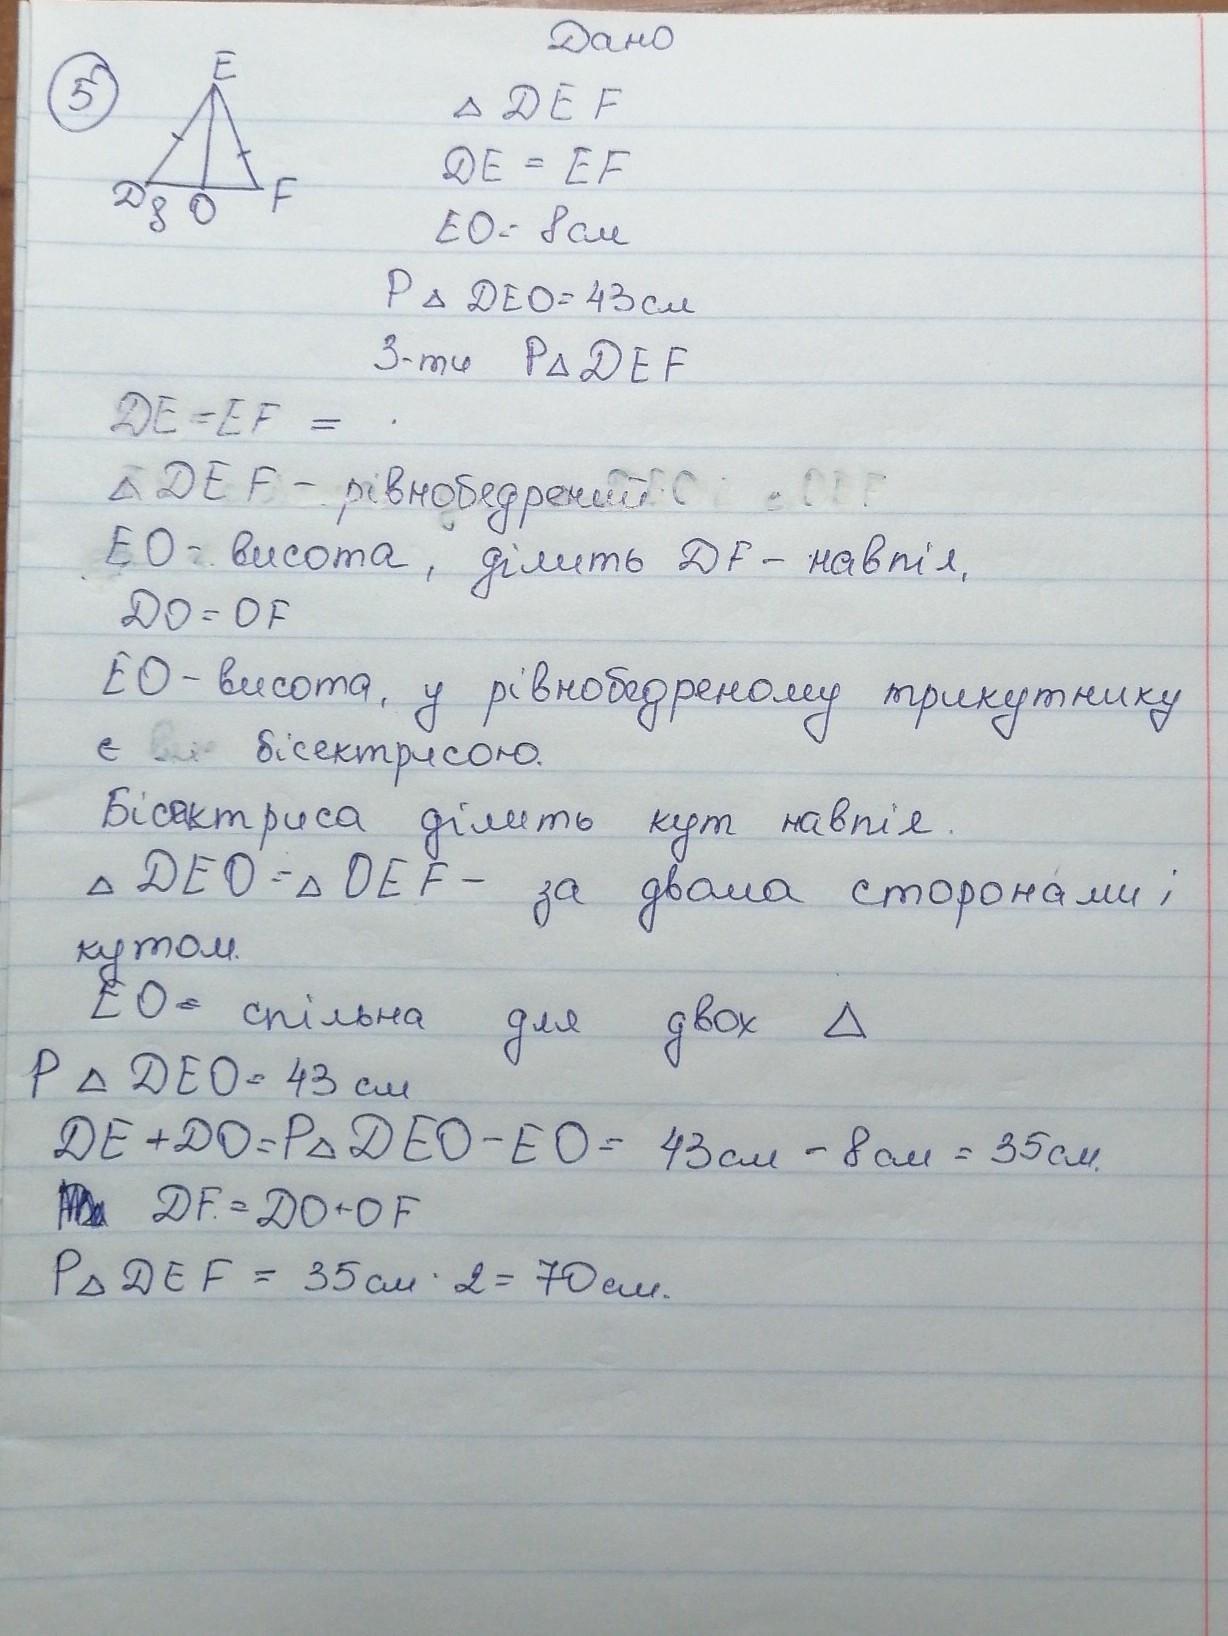 Дано
5
E
D 8 O F
△ DEF
DE = EF
EO = 8 см
P △ DEO = 43 см
З-ти P△ DEF
DE = EF = .
△ DEF – рівнобедрений
EO = висота, ділить DF – навпіл,
DO = OF
EO – висота, у рівнобедреному трикутнику
є бісектрисою.
Бісектриса ділить кут навпіл.
△ DEO = △ OEF – за двома сторонами і
кутом.
EO = спільна для двох △
P △ DEO = 43 см
DE + DO = P△ DEO – EO = 43 см – 8 см = 35 см.
DF. = DO + OF
P△ DEF = 35 см · 2 = 70 см.